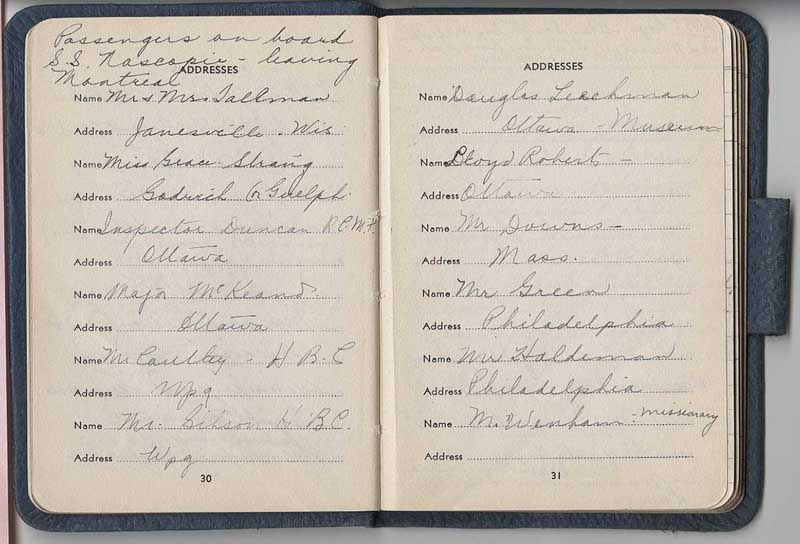 Passengers on board
S.S. Nascopie - leaving
Montreal
ADDRESSES
Name Mr & Mrs Tallman
Address Janesville. Wis
Name Miss Grace Strang
Address Godrich or Guelph.
Name Inspector Duncan R.C.M.P.
Address Ottawa
Name Major McKeand.
Address Ottawa
Name Mr Caulkey - H B.C
Address Wpg
Name Mr. Gibson H B.C.
Address Wpg
30
ADDRESSES
Name Douglas Leechman
Address Ottawa - Museum
Name Lloyd Roberts -
Address Ottawa
Name Mr Downs -
Address Mass.
Name Mr Green
Address Philadelphia
Name Mr Haldeman
Address Philadelphia
Name Mr Wenham - missionary
Address
31